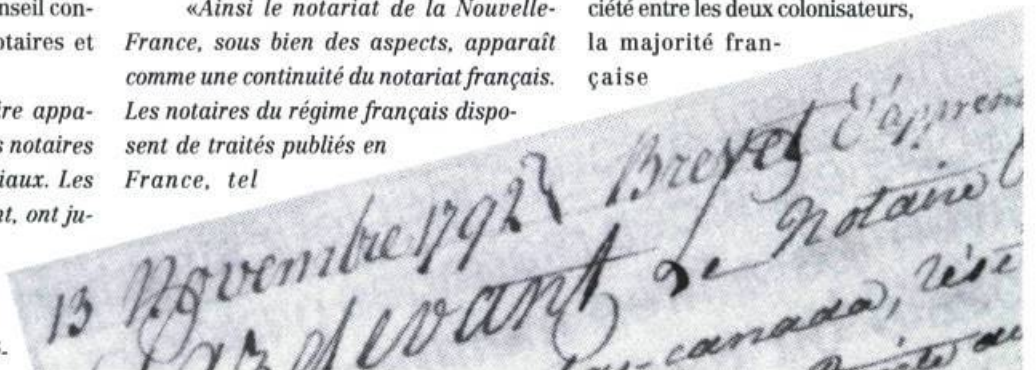 nseil con-
otaires et
re appa-
s notaires
iaux. Les
nt, ont ju-
«Ainsi le notariat de la Nouvelle-
France, sous bien des aspects, apparaît
comme une continuité du notariat français.
Les notaires du régime français dispo-
sent de traités publiés en
France, tel
ciété entre les deux colonisateurs,
la majorité fran-
çaise
13 Novembre 1792 } Brevet d'appren
Pardevant Le Notaire
canada, rési